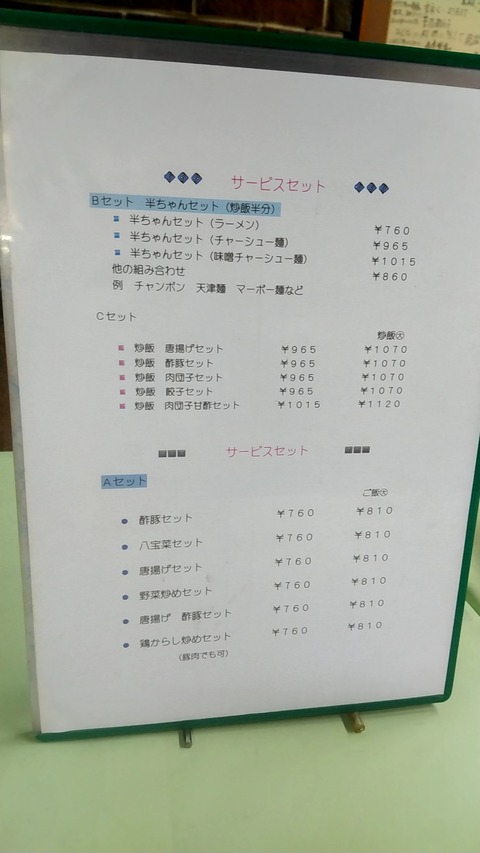 サービスセット
Bセット 半ちゃんセット（炒飯半分）
半ちゃんセット（ラーメン） ￥760
半ちゃんセット（チャーシュー麺） ￥965
半ちゃんセット（味噌チャーシュー麺） ￥1015
他の組み合わせ ￥860
例 チャンポン 天津麺 マーボー麺など
Cセット
炒飯大
炒飯 唐揚げセット ￥965 ￥1070
炒飯 酢豚セット ￥965 ￥1070
炒飯 肉団子セット ￥965 ￥1070
炒飯 餃子セット ￥965 ￥1070
炒飯 肉団子甘酢セット ￥1015 ￥1120
サービスセット
Aセット
ご飯大
酢豚セット ￥760 ￥810
八宝菜セット ￥760 ￥810
唐揚げセット ￥760 ￥810
野菜炒めセット ￥760 ￥810
唐揚げ 酢豚セット ￥760 ￥810
鶏からし炒めセット ￥760 ￥810
（豚肉でも可）